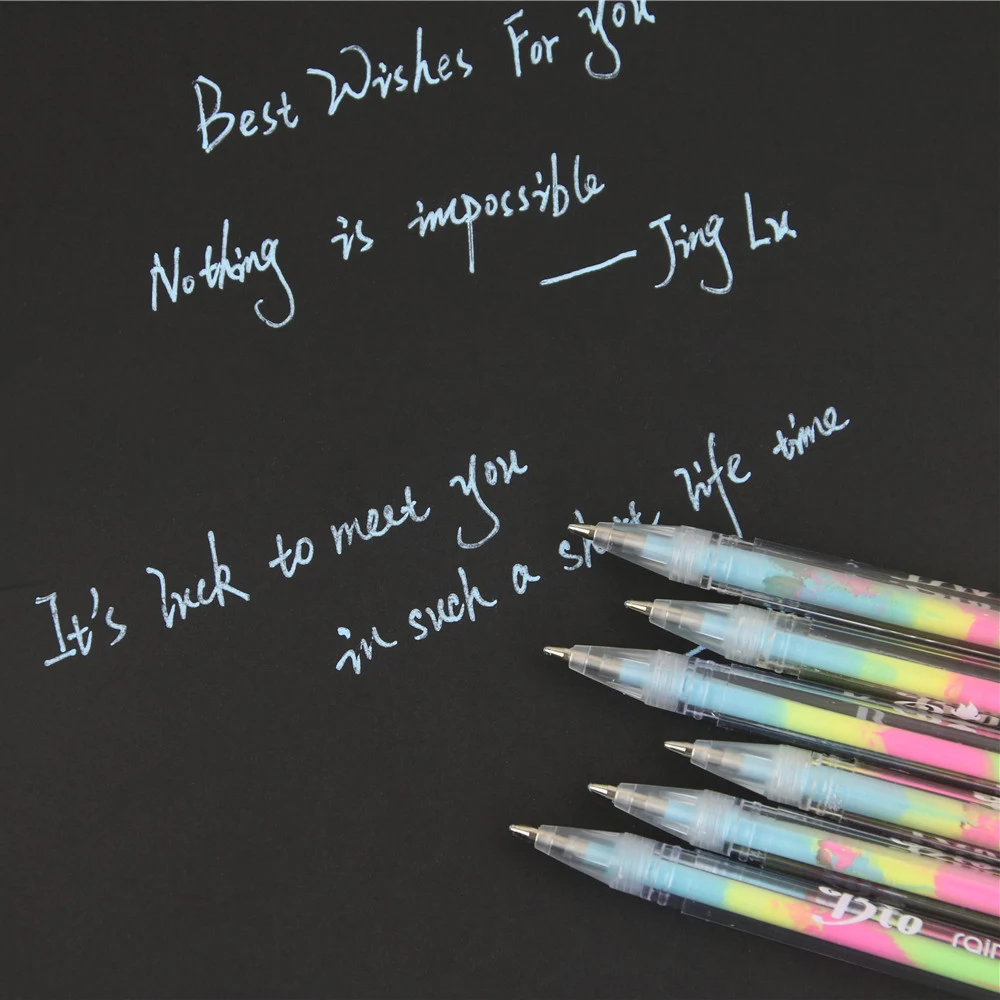 Best Wishes For you
Nothing is impossible
— Jing Lu
It's luck to meet you
in such a short life time